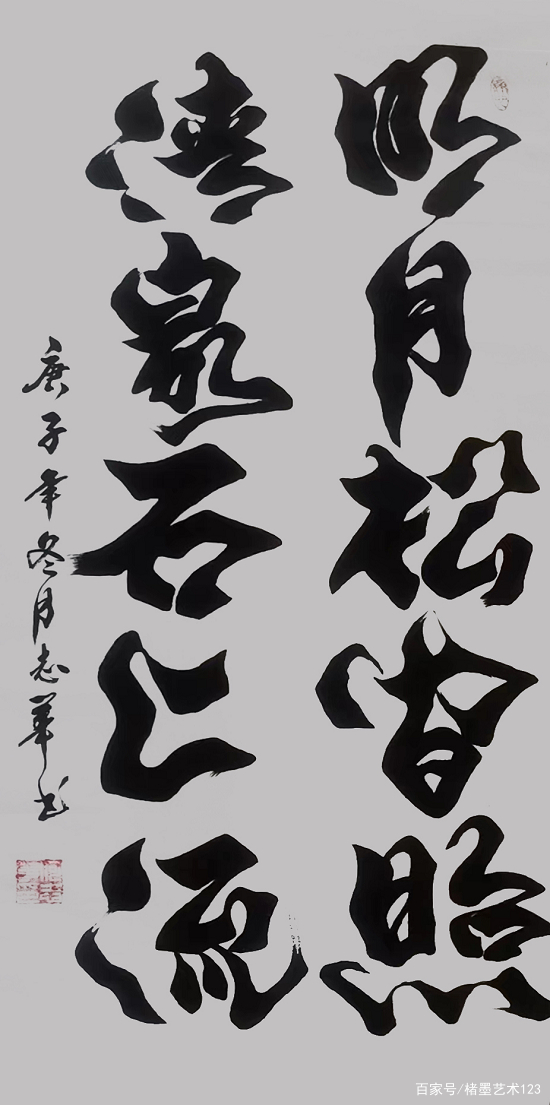 明月松间照
清泉石上流
庚子年冬月志华书
百家号/楮墨艺术123